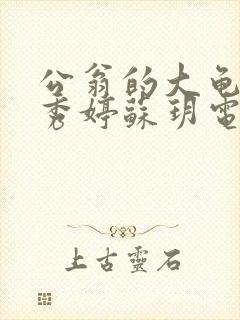 公翁的大龟
秀婷蘇玥電
上古靈石